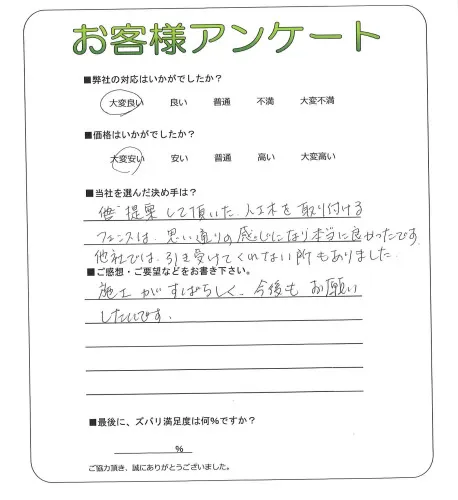 お客様アンケート
■弊社の対応はいかがでしたか？
大変良い 良い 普通 不満 大変不満
■価格はいかがでしたか？
大変安い 安い 普通 高い 大変高い
■当社を選んだ決め手は？
提案して頂いた、人工木を取り付ける
フェンスは、思い通りの感じになり本当に良かったです。
他社では、引き受けてくれない所もありました。
■ご感想・ご要望などをお書き下さい。
施工がすばらしく、今後もお願い
したいです。
■最後に、ズバリ満足度は何%ですか？
%
ご協力頂き、誠にありがとうございました。